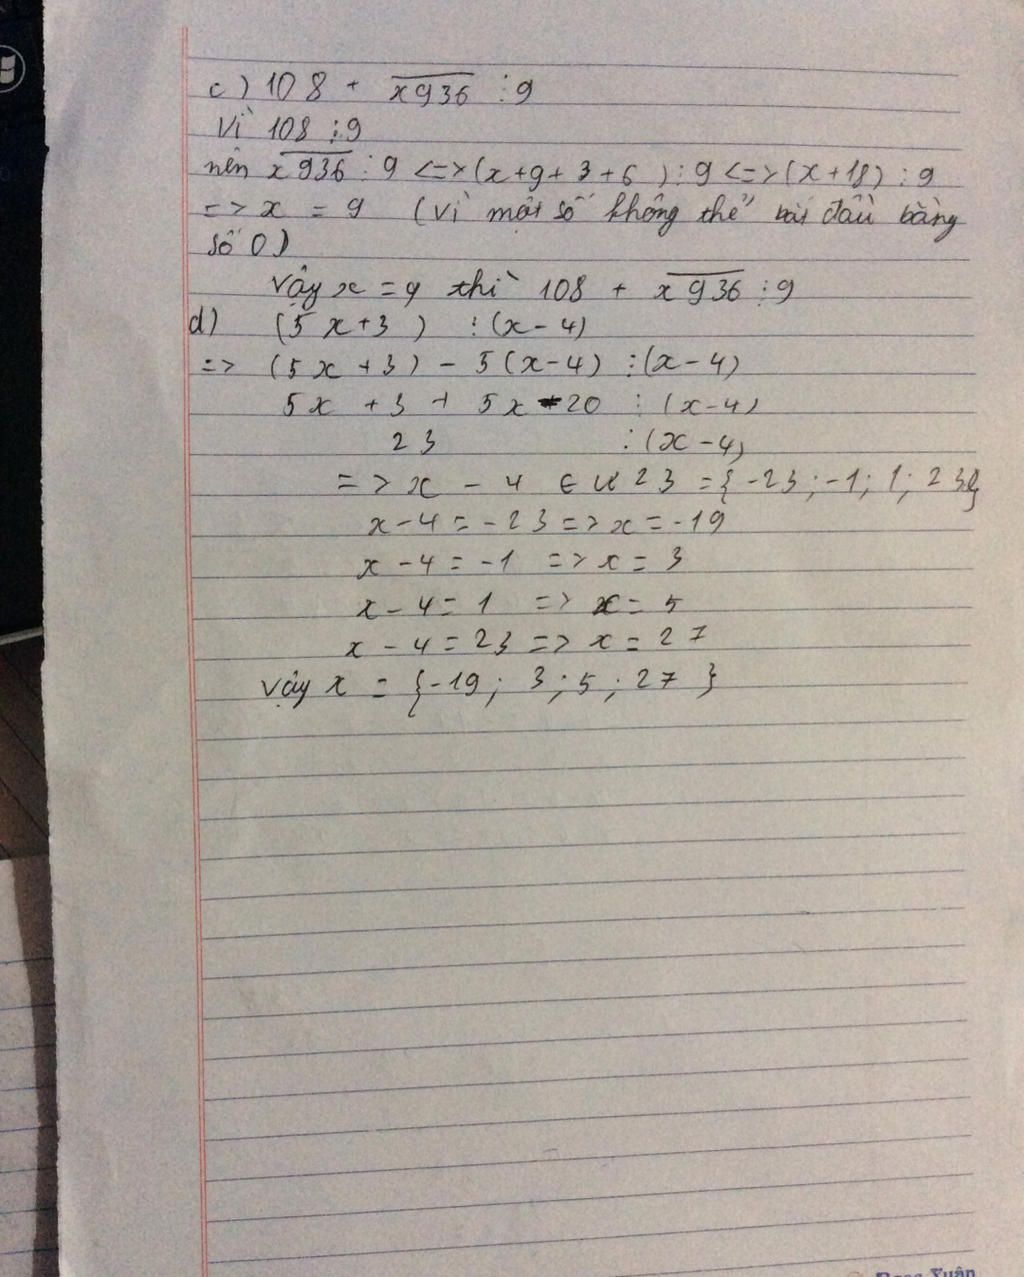 c) 108 + x936 ⋮ 9
Vì 108 ⋮ 9
nên x936 ⋮ 9 <=> (x+9+3+6) ⋮ 9 <=> (x+18) ⋮ 9
=> x = 9 (Vì một số không thể bắt đầu bằng
số 0)
Vậy x = 9 thì 108 + x936 ⋮ 9
d) (5x+3) ⋮ (x-4)
=> (5x+3) - 5(x-4) ⋮ (x-4)
5x + 3 + 5x - 20 ⋮ (x-4)
23 ⋮ (x-4)
=> x - 4 ∈ Ư 23 = {-23; -1; 1; 23}
x-4 = -23 => x = -19
x-4 = -1 => x = 3
x-4 = 1 => x = 5
x-4 = 23 => x = 27
Vậy x = {-19; 3; 5; 27}
Xuân